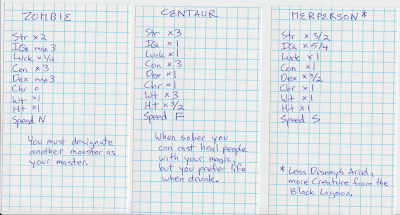 ZOMBIE
Str x 2
IQ max 3
Luck x 1/4
Con x 3
Dex max 3
Chr 0
Wt x1
Ht x1
Speed N
You must designate
another monster as
your master.
CENTAUR
Str x3
IQ x1
Luck x1
Con x3
Dex x1
Chr x1
Wt x3
Ht x 3/2
Speed F
When sober you
can cast heal people
with your magic,
but you prefer life
when drunk.
MERPERSON*
Str x 3/2
IQ x 5/4
Luck x 1
Con x 1
Dex x 3/2
Chr x 1
Wt x 1
Ht x 1
Speed S
* Less Disney's Ariel,
more Creature from the
Black Lagoon.